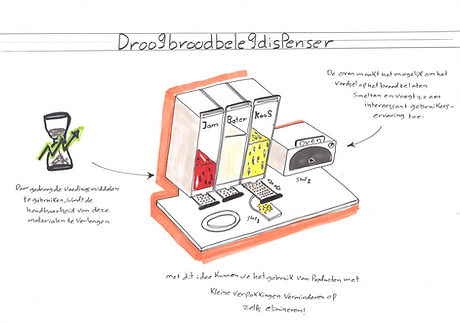 Droogbroodbelegdispenser
De oven maakt het mogelijk om het
voedsel op het brood te laten
smelten en voegt zo een
interessant gebruikers-
ervaring toe.
Jam
Boter
Kaas
Oven
Stap 2
Stap 1
Door gedroogde voedingsmiddelen
te gebruiken, wordt de
houdbaarheid van deze
materialen te verlengen
met dit idee kunnen we het gebruik van Producten met
kleine verpakkingen verminderen op
zelfs elimineren!